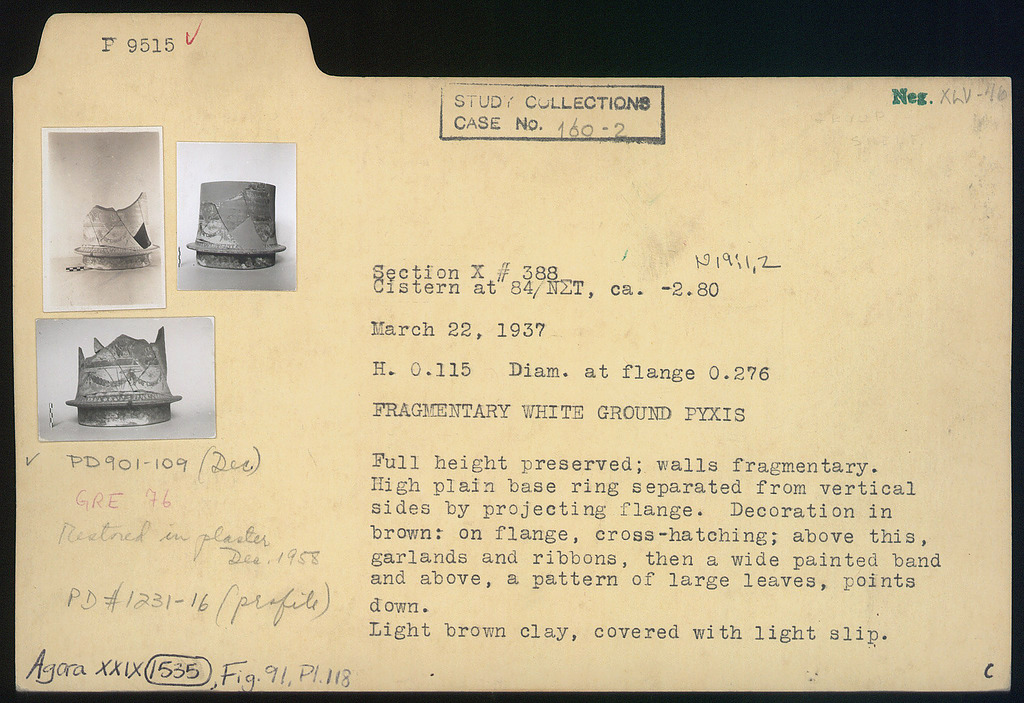 P 9515 ✓
STUDY COLLECTIONS
CASE No. 160-2
Neg. XLV-46
Section X # 388
Cistern at 84/ΝΣΤ, ca. -2.80
March 22, 1937
H. 0.115 Diam. at flange 0.276
FRAGMENTARY WHITE GROUND PYXIS
Full height preserved; walls fragmentary.
High plain base ring separated from vertical
sides by projecting flange. Decoration in
brown: on flange, cross-hatching; above this,
garlands and ribbons, then a wide painted band
and above, a pattern of large leaves, points
down.
Light brown clay, covered with light slip.
✓ PD901-109 (Dec)
GRE 76
Restored in plaster
Dec. 1958
PD#1231-16 (profile)
Agora XXIX 1535, Fig. 91, Pl. 118
C